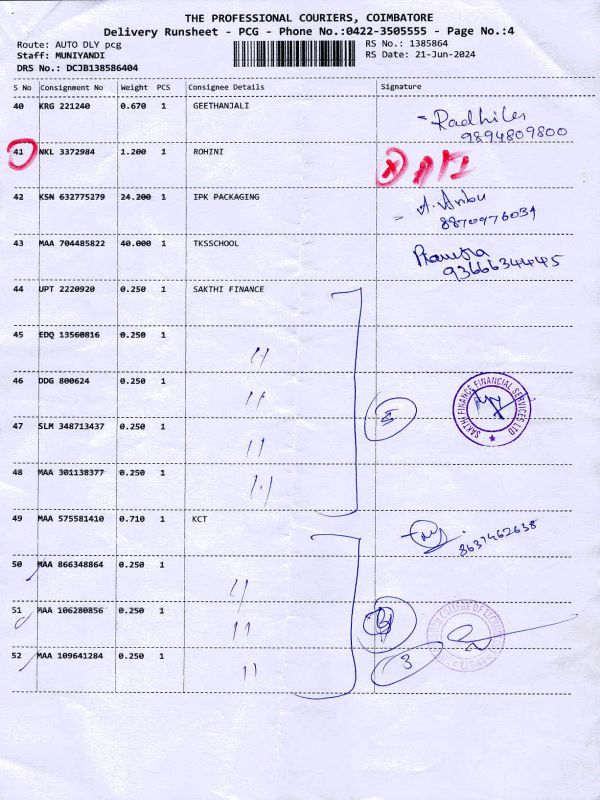 THE PROFESSIONAL COURIERS, COIMBATORE
Delivery Runsheet - PCG - Phone No.:0422-3505555 - Page No.:4
Route: AUTO DLY pcg RS No.: 1385864
Staff: MUNIYANDI RS Date: 21-Jun-2024
DRS No.: DCJB138586404
S No Consignment No Weight PCS Consignee Details Signature
40 KRG 221240 0.670 1 GEETHANJALI
9894809800
41 NKL 3372984 1.200 1 ROHINI
42 KSN 632775279 24.200 1 IPK PACKAGING A. Anbu
8870976034
43 MAA 704485822 40.000 1 TKSSCHOOL
9366634445
44 UPT 2220920 0.250 1 SAKTHI FINANCE
45 EDQ 13560816 0.250 1 "
46 DDG 800624 0.250 1 "
SAKTHI FINANCE FINANCIAL SERVICES LTD
47 SLM 348713437 0.250 1 " 5
48 MAA 301138377 0.250 1 "
49 MAA 575581410 0.710 1 KCT
8637462638
50 MAA 866348864 0.250 1 "
51 MAA 106280856 0.250 1 "
COLLEGE OF
52 MAA 109641284 0.250 1 " 3